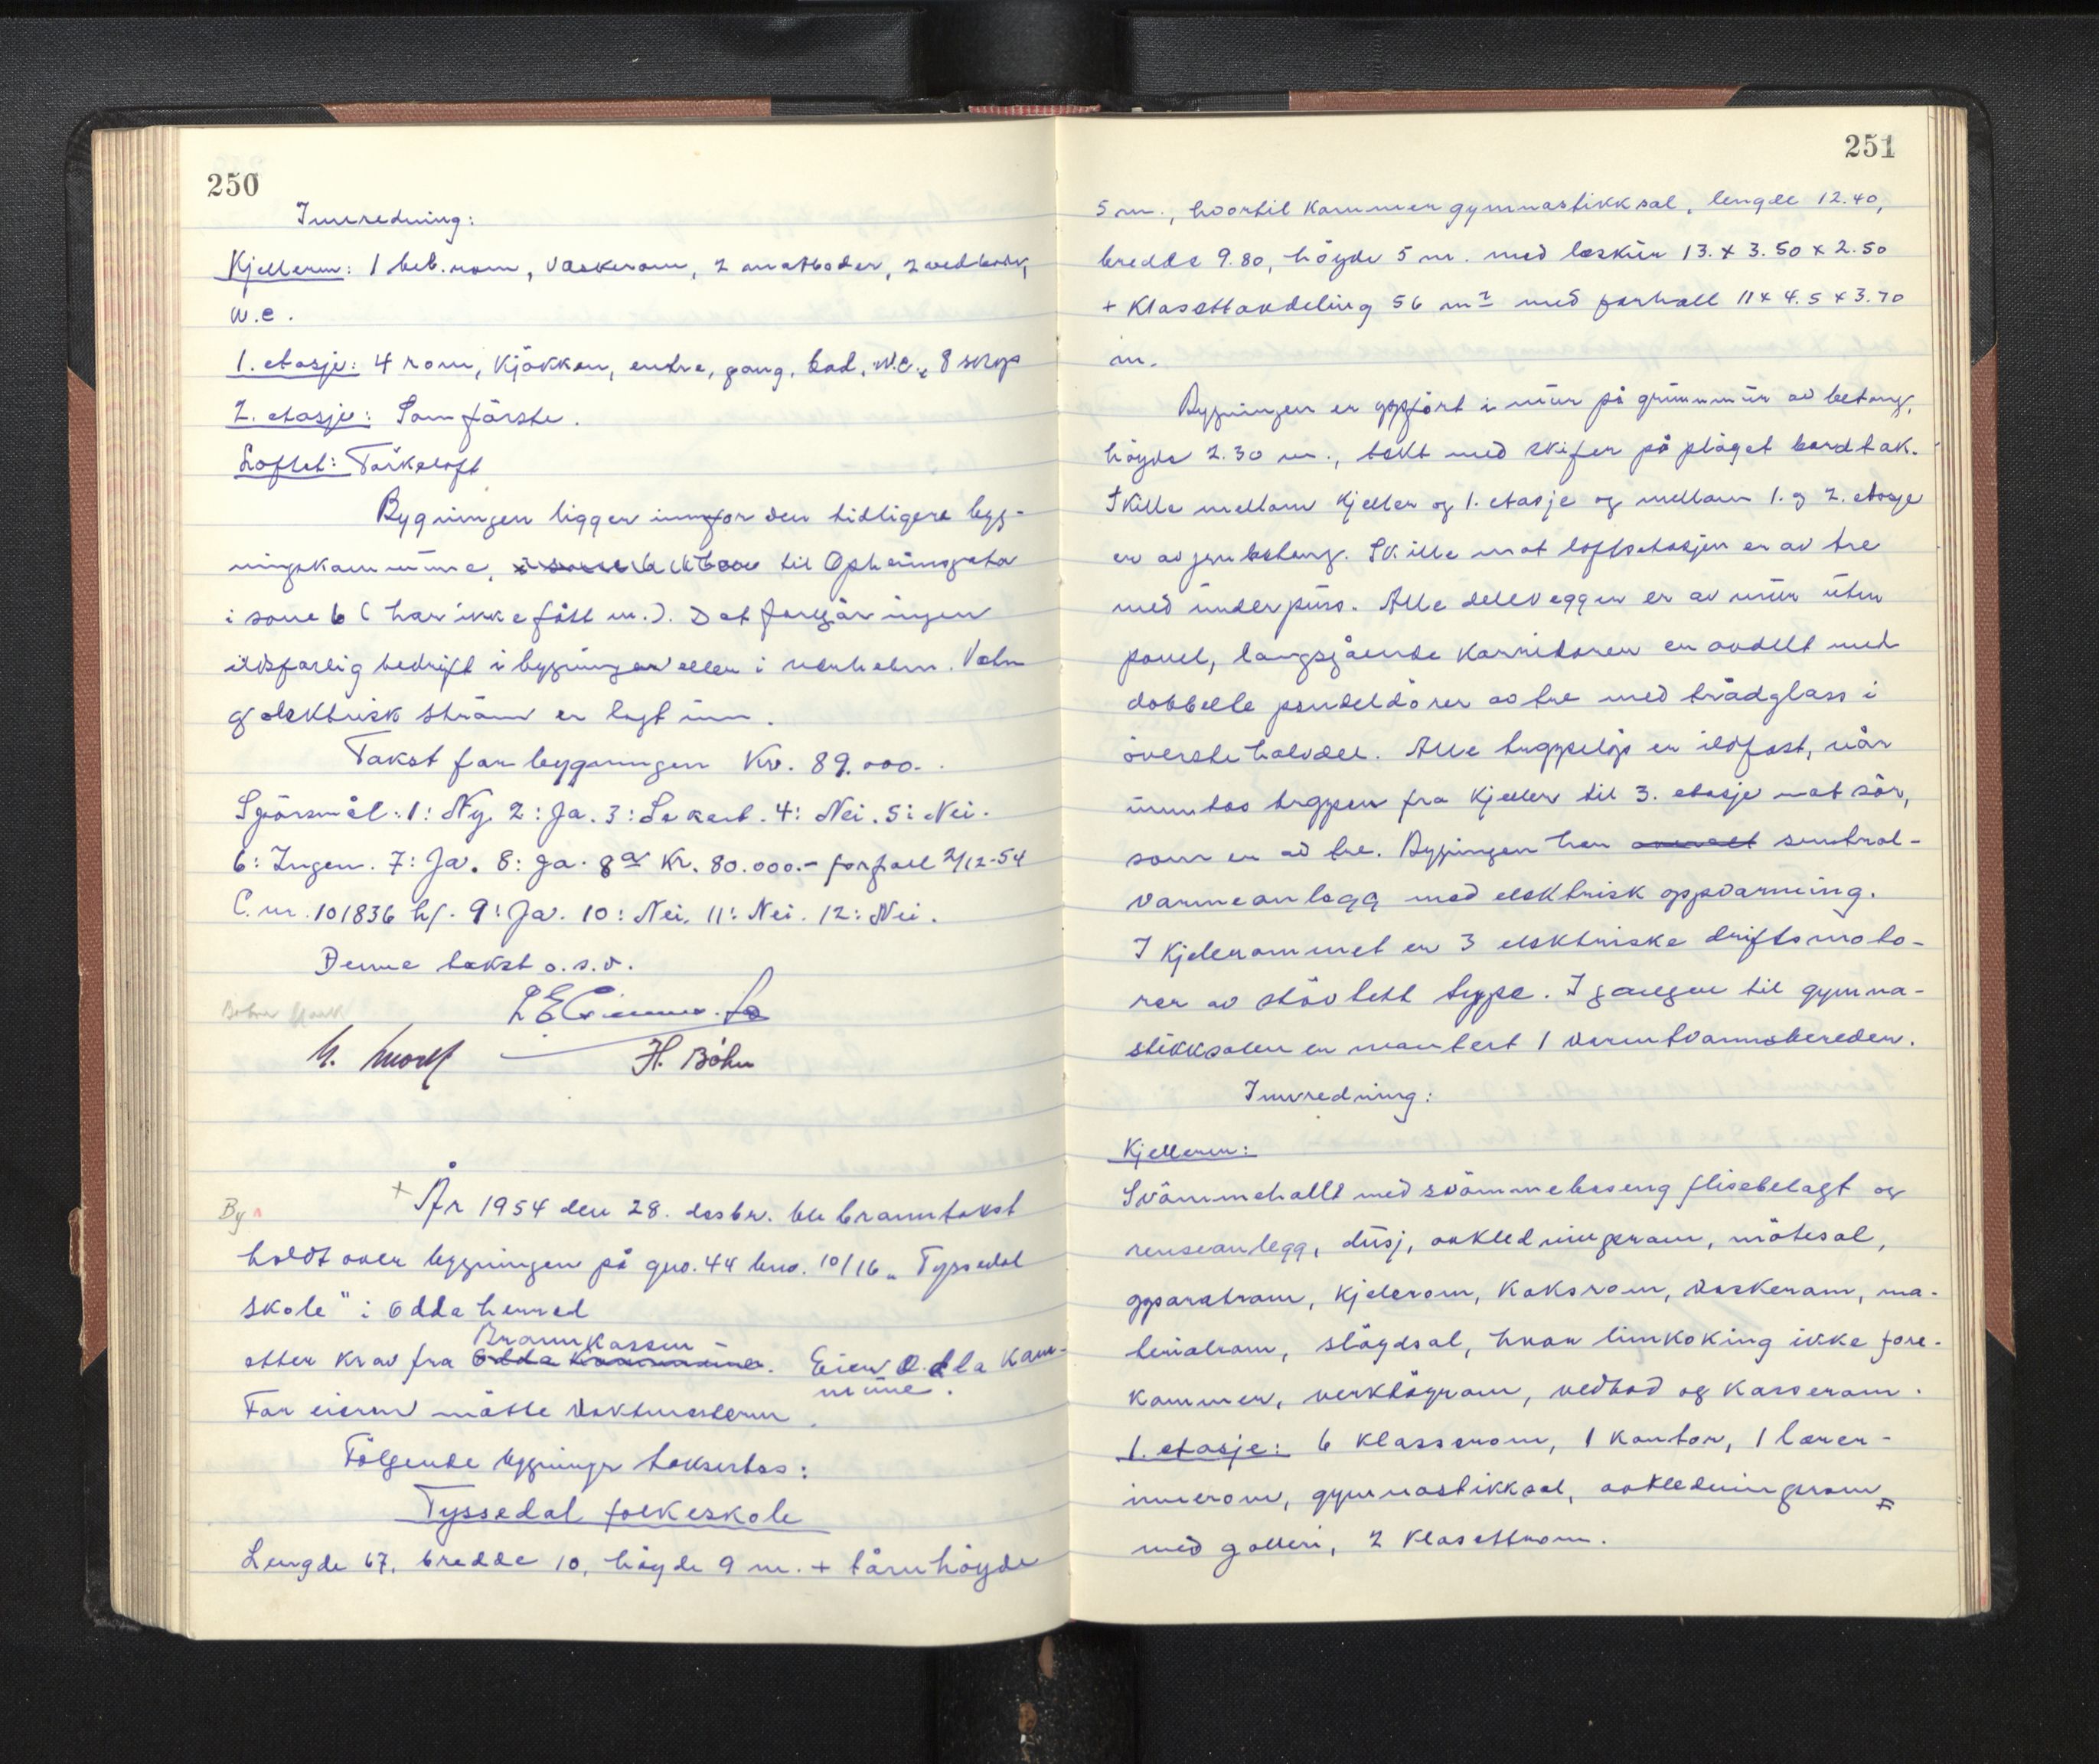 250
Innredning:
Kjelleren: 1 beb.rom, vaskerom, 2 matboder, 2 vedboder,
w.c.
1. etasje: 4 rom, kjøkken, entre, gang, bad, w.c., 8 skap
2. etasje: Som første.
Loftet: Tørkeloft
Bygningen ligger innfor den tidligere byg-
ningskommune, til Opheimsgata
i sone 6 (har ikke fått nr.). Det foregår ingen
ildsfarlig bedrift i bygningen eller i nærheten. Vatn
og elektrisk strøm er lagt inn.
Takst for bygningen Kr. 89.000.-
Spørsmål: 1: Ny. 2: Ja. 3: Se kart. 4: Nei. 5: Nei.
6: Ingen. 7: Ja. 8: Ja. 8a Kr. 80.000.- forfall 2/12-54
C. nr. 101836 hf. 9: Ja. 10: Nei. 11: Nei. 12: Nei.
Denne takst o.s.v.
H. Böhn
By
+ År 1954 den 28. desbr. ble branntakst
holdt over bygningen på gno. 44 bno. 10/16 „Tyssedal
skole" i Odda herred
Brannkassen
etter krav fra Odda kommune. Eier Odda kom-
mune.
For eieren møtte vaktmesteren.
Følgende bygninger takserbes:
Tyssedal folkeskole
Lengde 67, bredde 10, høyde 9 m. + tårnhøyde
251
5 m., hvortil kommer gymnastikksal, lengde 12.40,
bredde 9.80, høyde 5 m. med leskur 13. x 3.50 x 2.50
+ Klosettavdeling 56 m2 med forhall 11 x 4.5 x 3.70
m.
Bygningen er oppført i mur på grunnmur av betong,
høyde 2.30 m., tekt med skifer på pløyet bordtak.
Skille mellom kjeller og 1. etasje og mellom 1. og 2. etasje
er av jernbetong. Skille mot loftsetasjen er av tre
med underpuss. Alle delevegger er av mur uten
panel, langsgående korridorer er avdelt med
dobbelte pendeldører av tre med trådglass i
øverste halvdel. Alle trappeløp er ildfast, når
unntas trappen fra kjeller til 3. etasje mot sør,
som er av tre. Bygningen har sentral-
varmeanlegg med elektrisk oppvarming.
I kjelerommet er 3 elektriske driftsmoto-
rer av støvtett type. I gangen til gymna-
stikksalen er montert 1 varmtvannsbereder.
Innredning:
Kjelleren:
Svømmehall med svømmebaseng flisebelagt og
renseanlegg, dusj, avkledningsrom, møtesal,
apparatrom, kjelerom, koksrom, vaskerom, ma-
terialrom, sløydsal, hvor limkoking ikke fore-
kommer, verktøyrom, vedbod og kasserom.
1. etasje: 6 klasserom, 1 kontor, 1 lærer-
innerom, gymnastikksal, avkledningsrom
med galleri, 2 klosettrom.